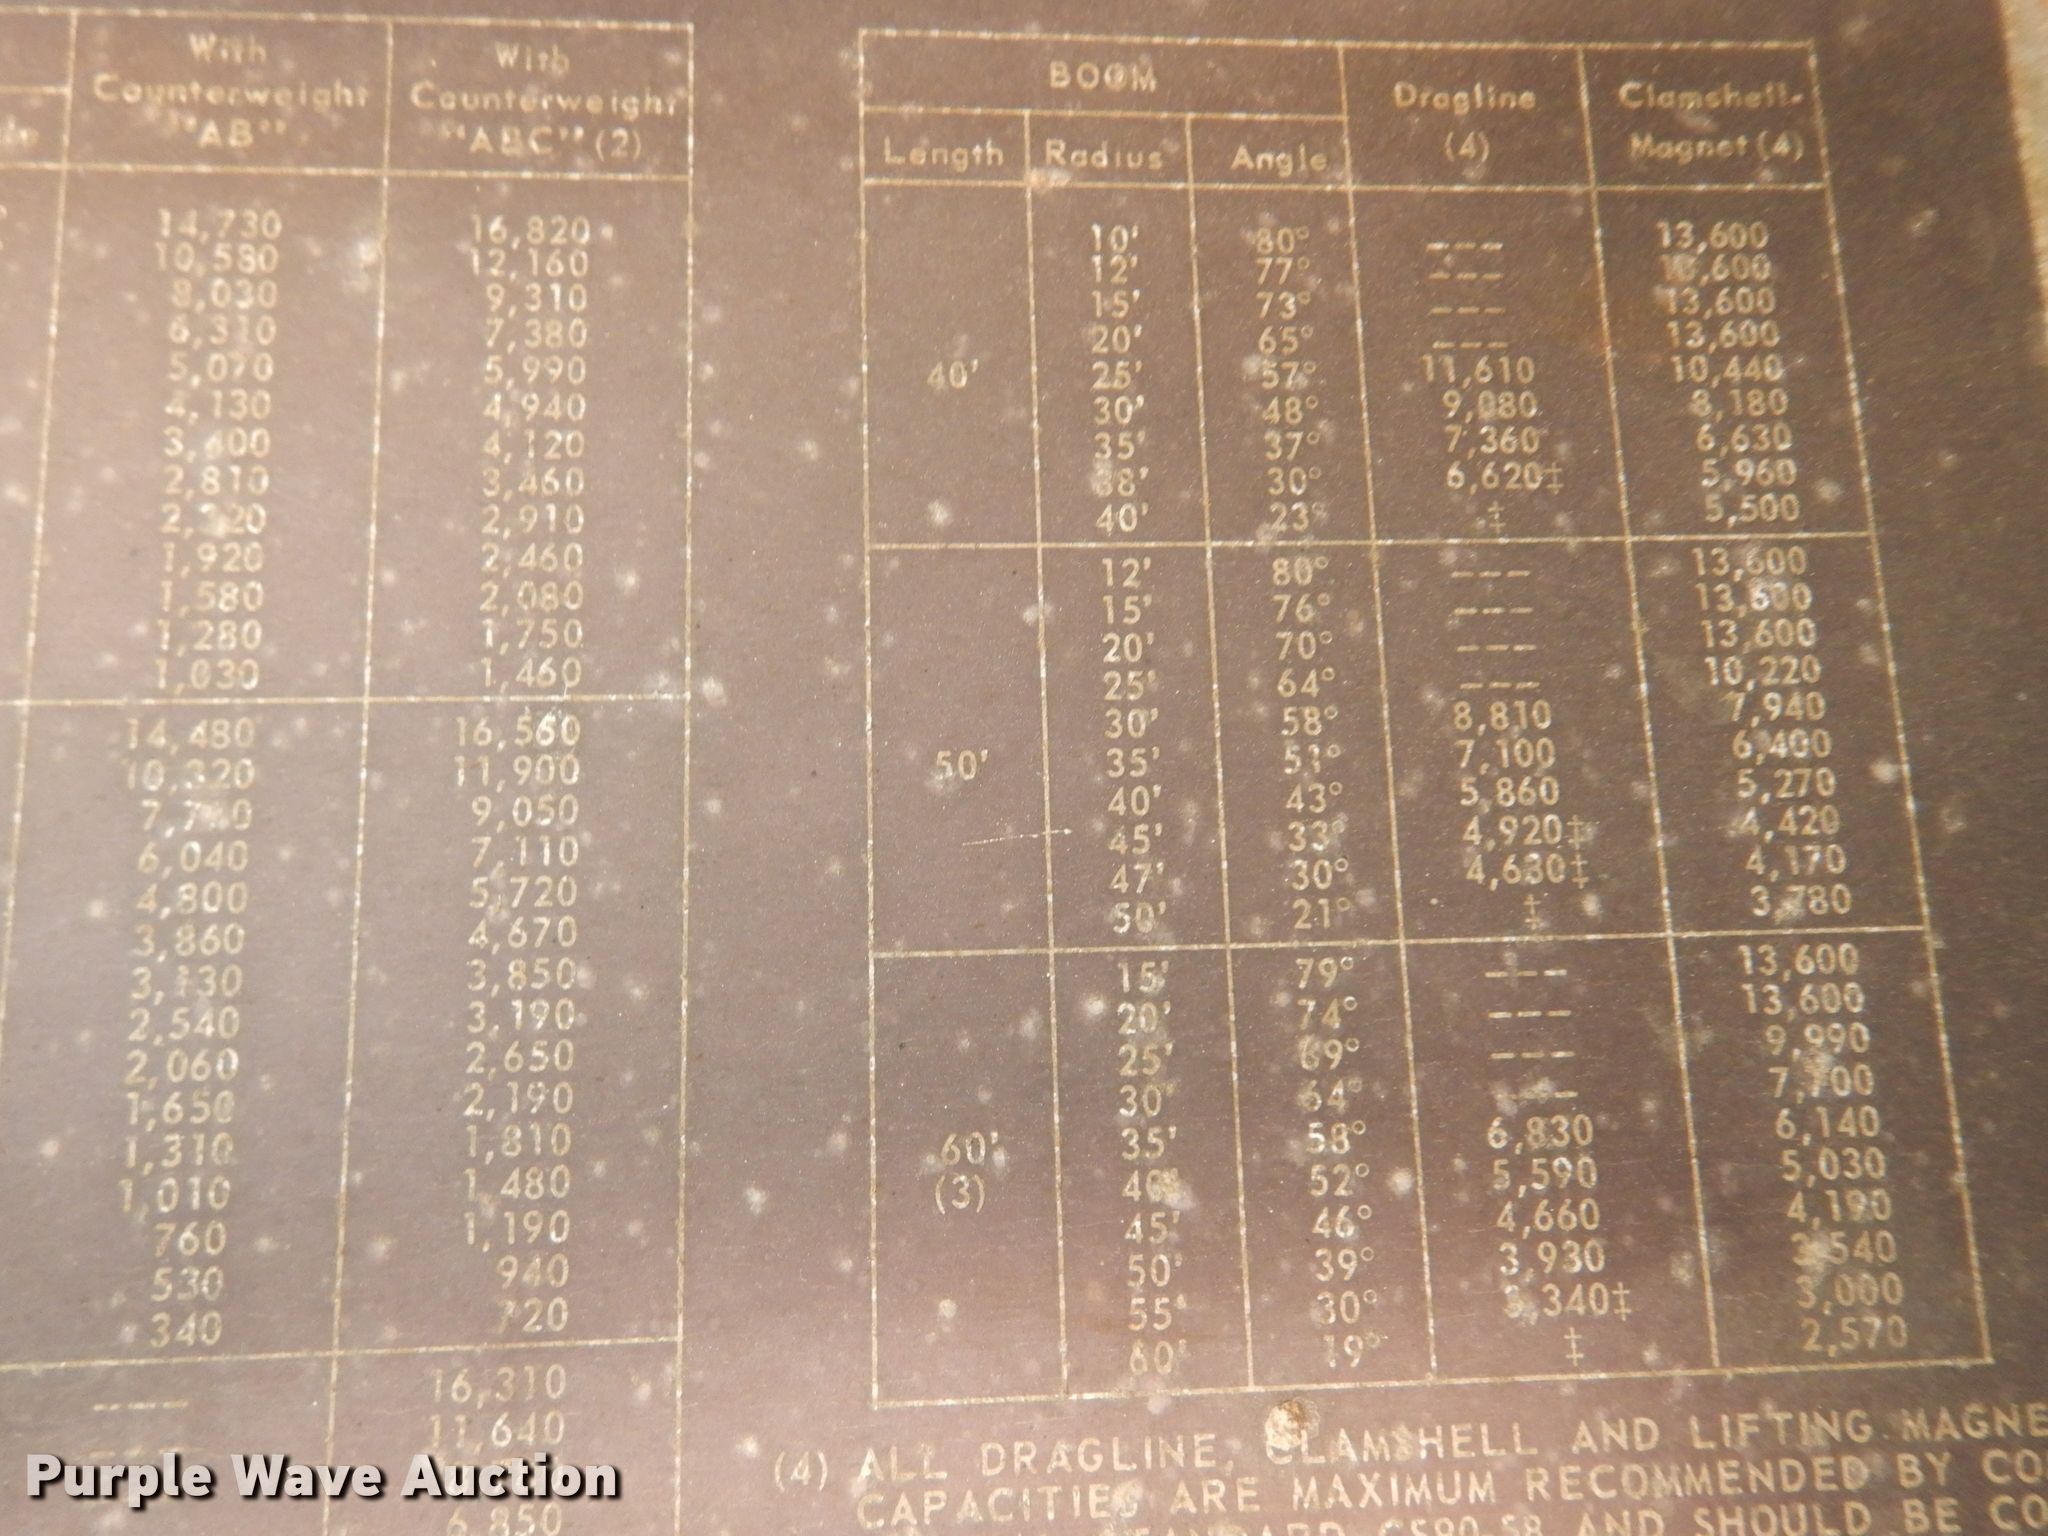 With With
Counterweight Counterweight
"AB" "ABC" (2)
14,730 16,820
10,580 12,160
8,030 9,310
6,310 7,380
5,070 5,990
4,130 4,940
3,400 4,120
2,810 3,460
2,910
1,920 2,460
1,580 2,080
1,280 1,750
1,030 1,460
14,480 16,560
10,320 11,900
9,050
6,040 7,110
4,800 5,720
3,860 4,670
3,130 3,850
2,540 3,190
2,060 2,650
1,650 2,190
1,310 1,810
1,010 1,480
760 1,190
530 940
340 720
---- 16,310
11,640
6,850
BOOM Dragline Clamshell-
Length Radius Angle (4) Magnet (4)
10' 80° --- 13,600
12' 77° --- 13,600
15' 73° --- 13,600
20' 65° --- 13,600
40' 25' 57° 11,610 10,440
30' 48° 9,080 8,180
35' 37° 7,360 6,630
38' 30° 6,620‡ 5,960
40' 23° ‡ 5,500
12' 80° --- 13,600
15' 76° --- 13,600
20' 70° --- 13,600
25' 64° --- 10,220
30' 58° 8,810 7,940
50' 35' 51° 7,100 6,400
40' 43° 5,860 5,270
45' 33° 4,920‡ 4,420
47' 30° 4,630‡ 4,170
50' 21° ‡ 3,780
15' 79° --- 13,600
20' 74° --- 13,600
25' 69° --- 9,990
30' 64° --- 7,700
60' 35' 58° 6,830 6,140
(3) 40' 52° 5,590 5,030
45' 46° 4,660 4,190
50' 39° 3,930 3,540
55' 30° 3,340‡ 3,000
60' 19° ‡ 2,570
(4) ALL DRAGLINE, CLAMSHELL AND LIFTING MAGNE
CAPACITIES ARE MAXIMUM RECOMMENDED BY CO
CS90-58 AND SHOULD BE CO
Purple Wave Auction